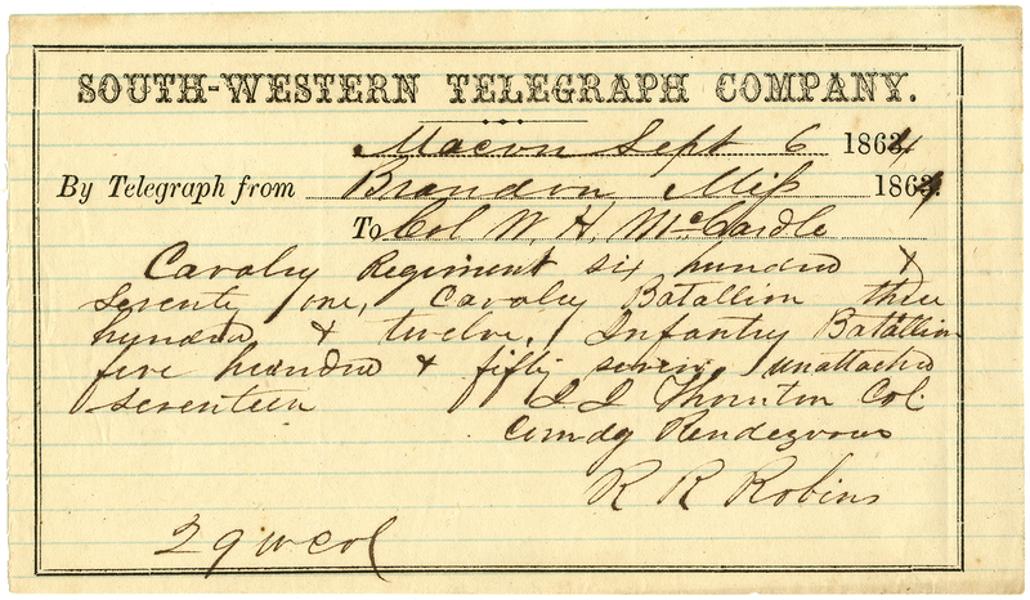 SOUTH-WESTERN TELEGRAPH COMPANY.
Macon Sept 6 1864
By Telegraph from Brandon Miss 1864
To Col W. H. McCardle
Cavalry Regiment six hundred &
Seventy one, Cavalry Batallion three
hundred & twelve, Infantry Batallion
five hundred & fifty seven, unattached
seventeen J J Thornton Col.
Comdg Rendezvous
R R Robins
29 w col